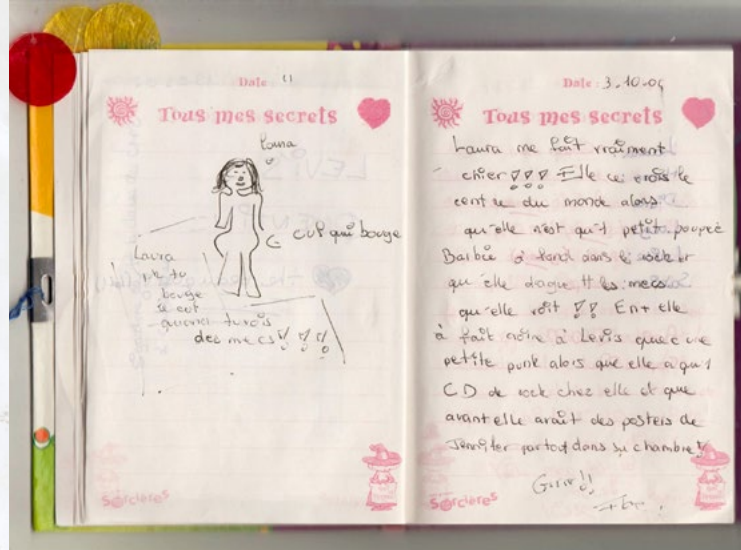 Date 11
Tous mes secrets
Laura
cul qui bouge
Laura
bouge
le cul
quand tu vois
des mecs!!!
Sorcières
Date : 3.10.04
Tous mes secrets
Laura me fait vraiment
chier !!! Elle ce crois le
centre du monde alors
qu'elle n'est qu'1 petit poupée
Barbie à fond dans le
qu'elle drague tt les mecs
qu'elle voit !! En+ elle
à fait croire à Levis quec une
petite punk alors que elle a qu'1
CD de rock chez elle et que
avant elle avait des posters de
Jennifer partout dans sa chambre!!
Grrr!!
Sorcières